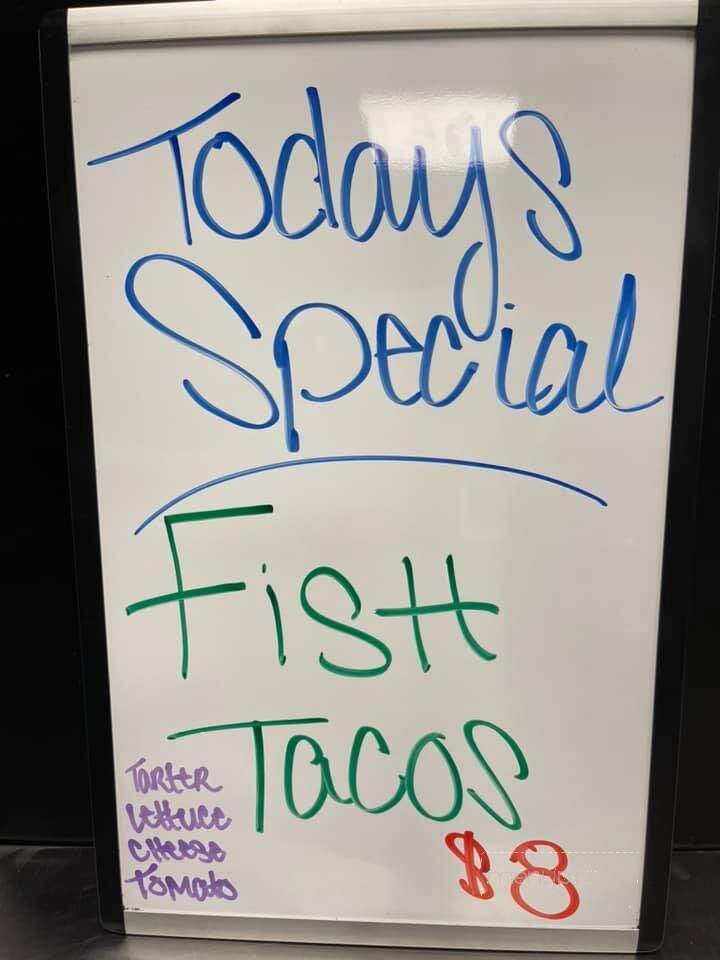 Todays
Special
Fish
Tacos
Tarter
Lettuce
Cheese
Tomato
$8